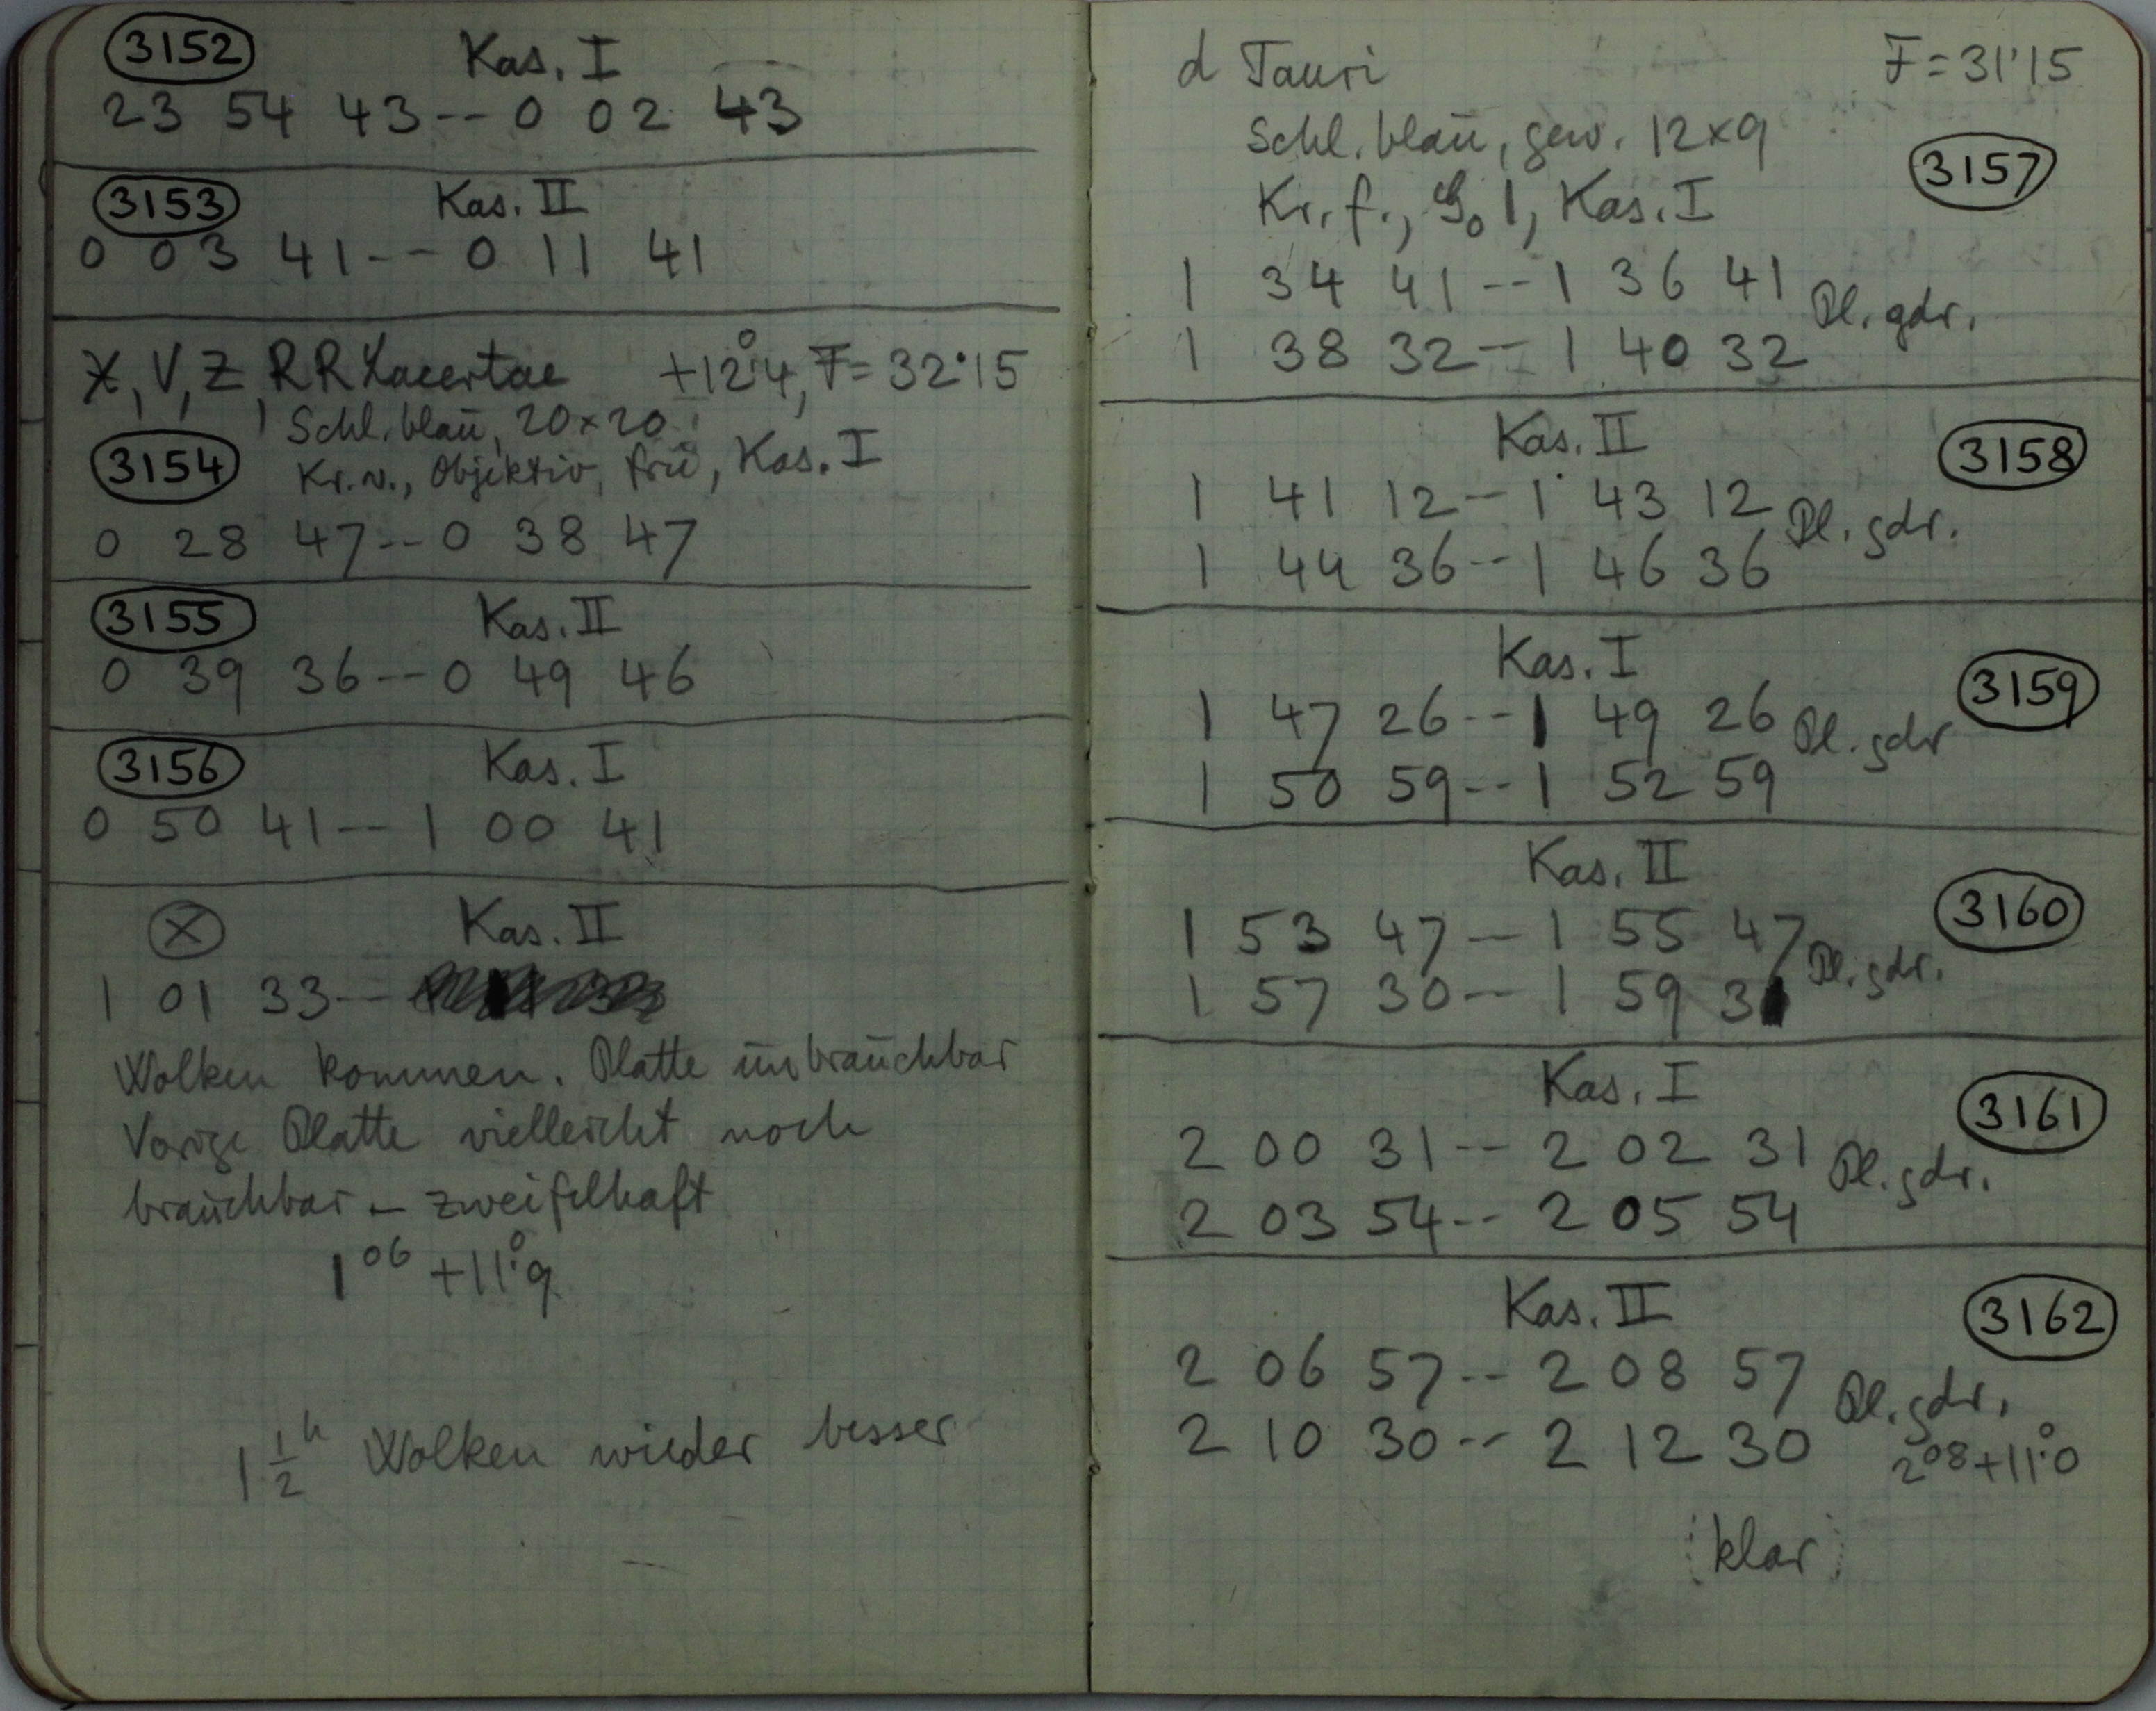 3152 Kas. I
23 54 43 -- 0 02 43
3153 Kas. II
0 03 41 -- 0 11 41
X, V, Z, RR Lacertae +12°4, F = 32·15
Schl. blau, 20 x 20
3154 Kr. v., Objektiv, frü, Kas. I
0 28 47 -- 0 38 47
3155 Kas. II
0 39 36 -- 0 49 46
3156 Kas. I
0 50 41 -- 1 00 41
X Kas. II
1 01 33 --
Wolken kommen. Platte unbrauchbar
Vorige Platte vielleicht noch
brauchbar – zweifelhaft
1 06 +11°9
1 1/2 h Wolken wieder besser
d Tauri F = 31'15
Schl. blau, gew. 12 x 9
3157
Kr. f., Kas. I
1 34 41 -- 1 36 41 Pl. gdr.
1 38 32 -- 1 40 32
Kas. II 3158
1 41 12 -- 1 43 12 Pl. gdr.
1 44 36 -- 1 46 36
Kas. I 3159
1 47 26 -- 1 49 26 Pl. gdr
1 50 59 -- 1 52 59
Kas. II 3160
1 53 47 -- 1 55 47 Pl. gdr.
1 57 30 -- 1 59 31
Kas. I 3161
2 00 31 -- 2 02 31 Pl. gdr.
2 03 54 -- 2 05 54
Kas. II 3162
2 06 57 -- 2 08 57 Pl. gdr.
2 10 30 -- 2 12 30 2 08 +11°0
(klar)